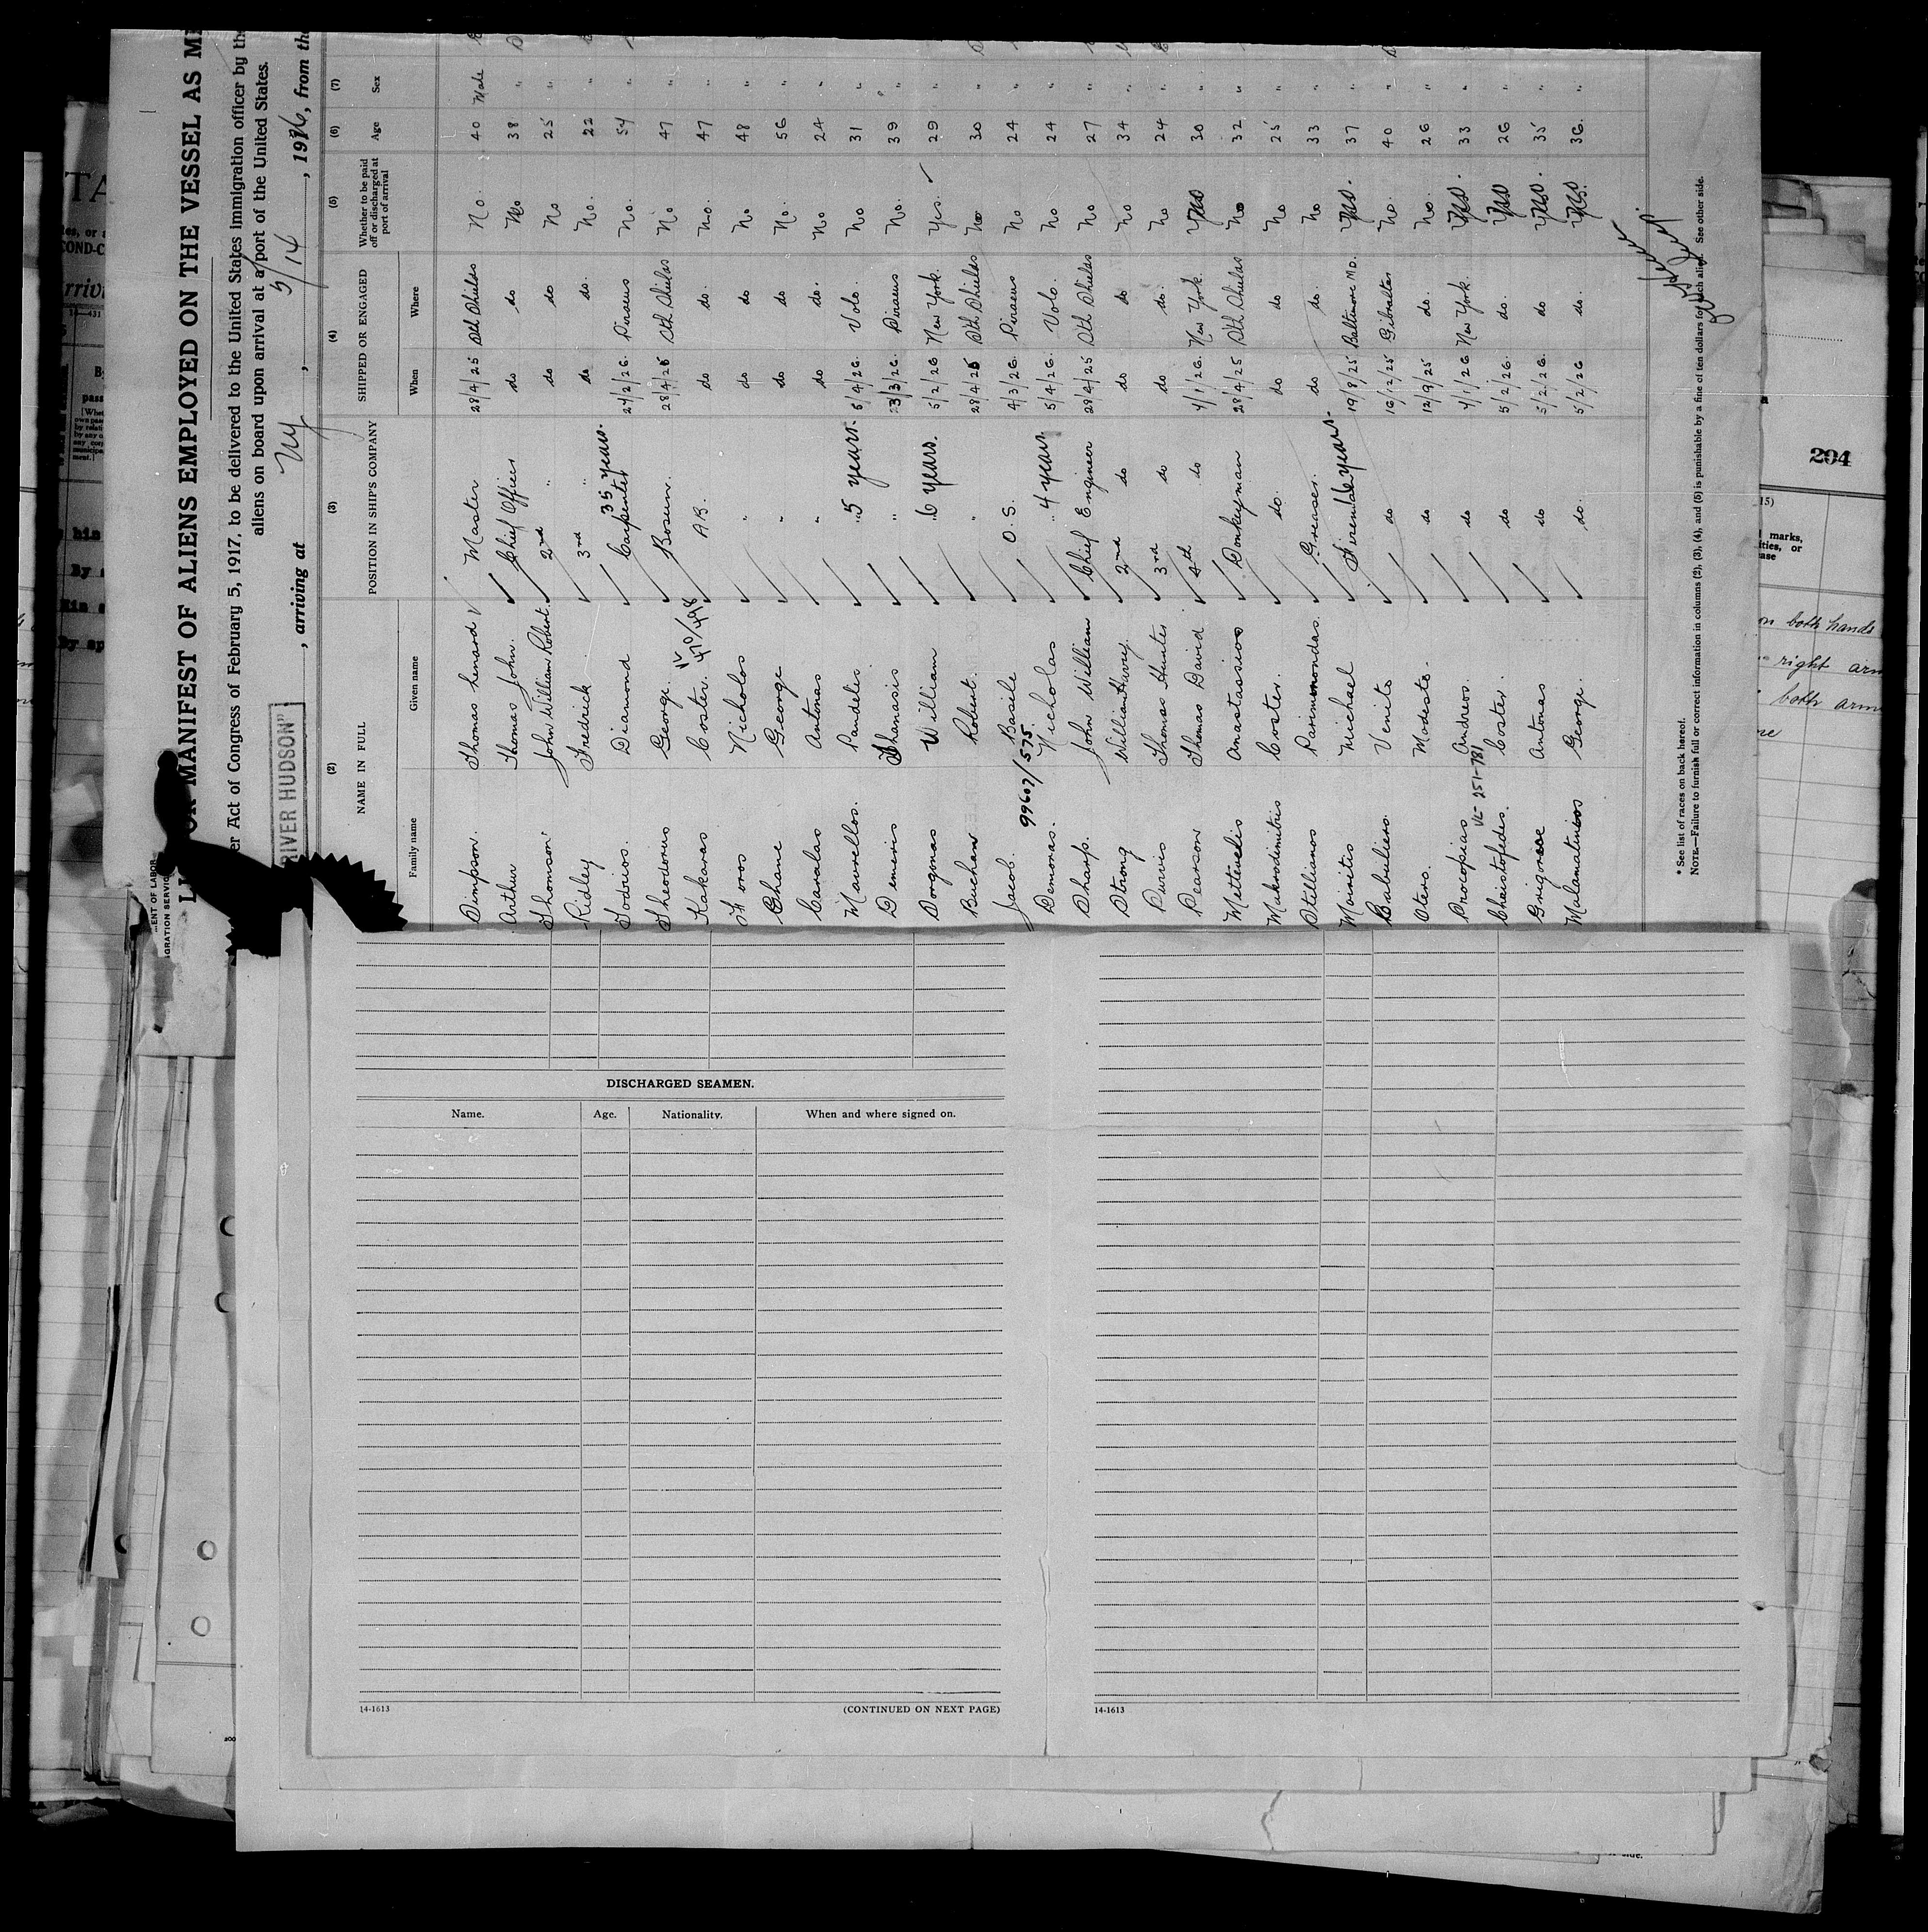 MANIFEST OF ALIENS EMPLOYED ON THE VESSEL AS
er Act of Congress of February 5, 1917, to be delivered to the United States immigration officer by the
aliens on board upon arrival at a port of the United States.
RIVER HUDSON" , arriving at NY , 5/14 , 1926, from the
(2) (3) (4) (5) (6) (7)
NAME IN FULL POSITION IN SHIP'S COMPANY SHIPPED OR ENGAGED Whether to be paid off or discharged at port of arrival Age Sex
Family name Given name When Where
Simpson. Thomas Master 28/4/25 Sth Shields No. 40 Male
Arthur Thomas John. Chief Officer do do No 38 "
Thomson John William Robert. 2nd " do do No 25 "
Ridley Fredrick 3rd " do do. No. 22 "
Diamond 35 years. Carpenter 27/2/26. Piraeus No. 54 "
Theodorus George. Bosun. 28/4/25 Sth Shields No 47 "
Kakavas Coster. A.B. do do. No. 47 "
470/498
Nicholos " do do No 48 "
Chane George " do do No. 56 "
Caralas Antonas " do do. No 24 "
Mavrellos. Pandelis 5 years. 5/4/26. Volo. No 31 "
Demeris Thanasis " 23/3/26. Piraeus No. 39 "
Dorgonas William 6 years. 5/2/26 New York. Yes. 29 "
Buchan Robert. " 28/4/25 Sth Shields No 30 "
Jacob. Basile O.S. 4/3/26. Piraeus No 24 "
99607/575
Demonas. Nicholas 4 years 5/4/26. Volo. No 24 "
Sharp. John William Chief Engineer 28/4/25 Sth Shields No 27 "
Strong William Harvey. 2nd do do do No 34 "
Purvis Thomas Hunter 3rd do do do. No 24 "
Pearson Thomas David 4th do 4/1/26. New York. Yes 30 "
Mettenelis Anastassios Donkeyman 28/4/25 Sth Shields No 32 "
Makrodimitris Coster. do. do do No 25 "
Stillianos Parimmondas. Greaser. do do. No 33 "
Moinitis Michael Fireman 19/8/25 Baltimore MD. Yes. 37 "
Babuliero. Venito do 16/12/25 Gibraltar No. 40 "
Otero. Modesto. do 12/9/25 do. No. 26 "
Procopias Andreos. do 4/1/26 New York. Yes. 33 "
VL- 251-781
Christofedes. Coster. do 5/2/26. do. Yes 26 "
Antonas do 5/2/26. do Yes. 35 "
Malamatinios George. do. 5/2/26 do. Yes. 36. "
* See list of races on back hereof.
NOTE.—Failure to furnish full or correct information in columns (2), (3), (4), and (5) is punishable by a fine of ten dollars for each alien. See other side.
ENT OF LABOR
IGRATION SERVICE
DISCHARGED SEAMEN.
Name. Age. Nationality. When and where signed on.
14-1613 (CONTINUED ON NEXT PAGE)
14-1613
204
marks,
on both hands
right arm
both arm